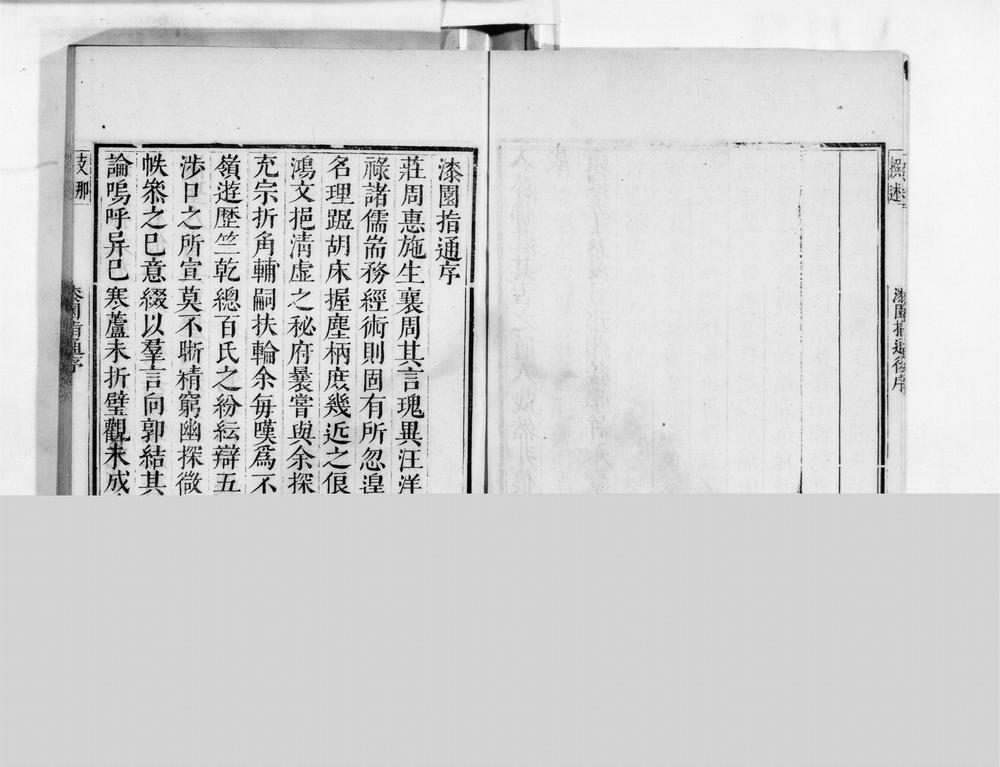 撰述
漆園指通後序
漆園指通序
莊周惠施生襄周其言瑰異汪洋
祿諸儒耑務經術則固有所忽遑
名理踞胡床握塵柄庻幾近之佷
鴻文挹淸虛之秘府曩嘗與余探
充宗折角輔嗣扶輪余每嘆爲不
嶺遊歷竺乾總百氏之紛紜辯五
涉口之所宣莫不晰精窮幽探微
帙叅之巳意綴以羣言向郭結其
論嗚呼异巳寒蘆未折璧觀未成
支那
漆園指通序